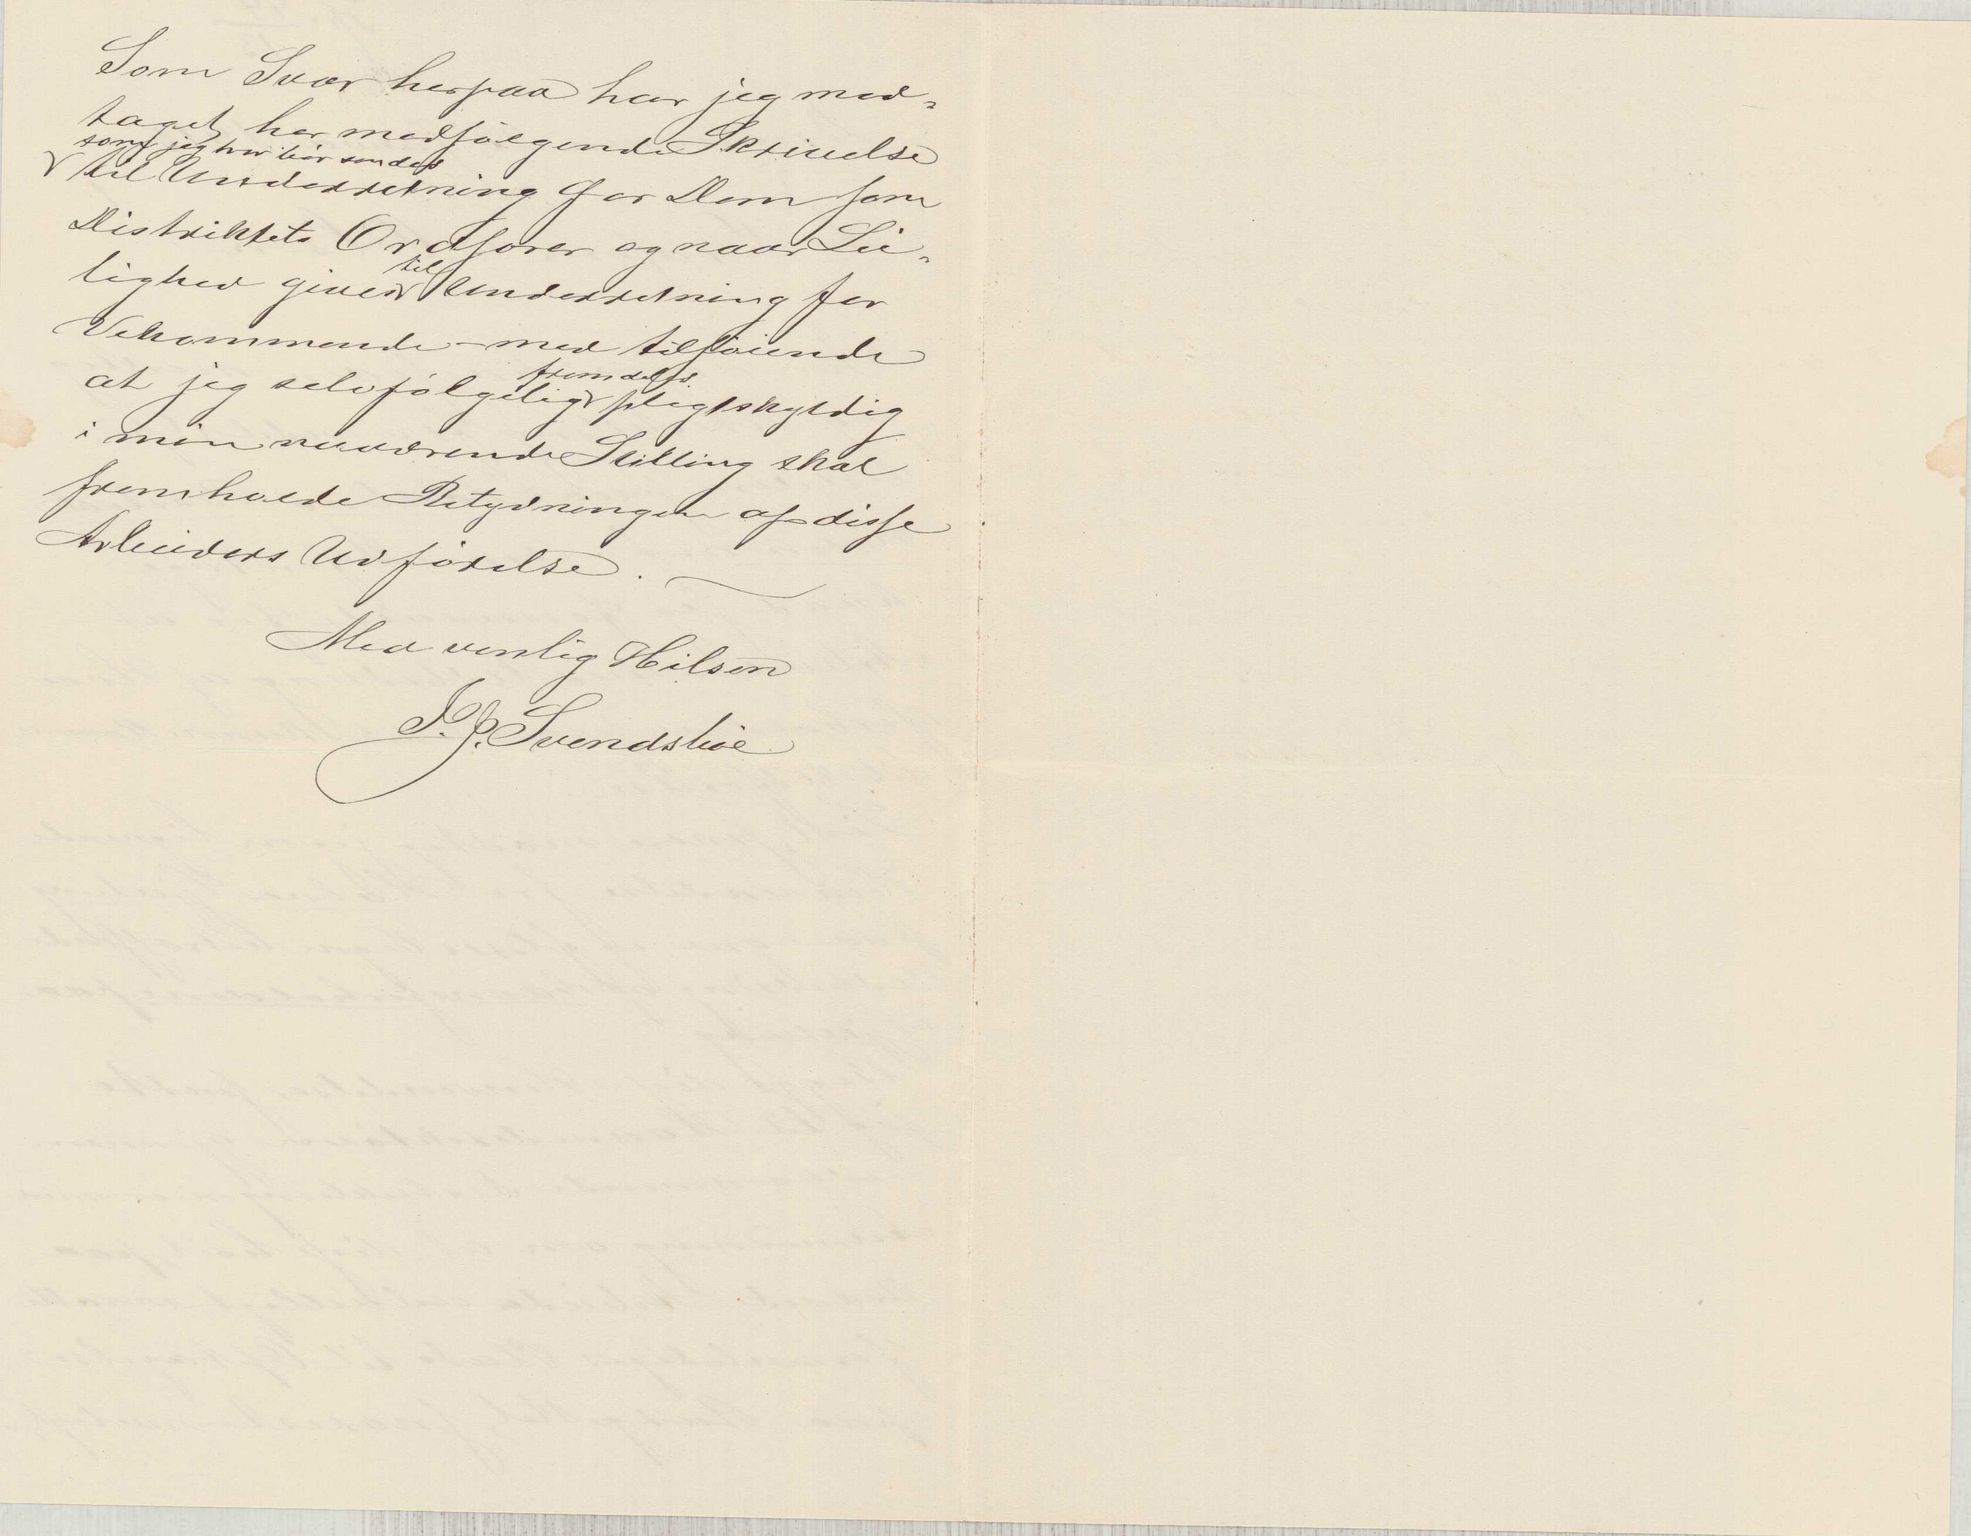 Som Svar herpaa har jeg mod-
taget her medfølgende Skrivelse
som jeg her bør sendes
til Underretning for Dem som
Distriktets Ordfører og naar Lei-
lighed gives til Underretning for
Vekommende – med tilføiende
at jeg selvfølgelig fremdeles pligtskyldig
i min nuværende Stilling skal
fremholde Betydningen af disse
Arbeiders Udførelse.
Med venlig Hilsen
J. J. Svendsbøe